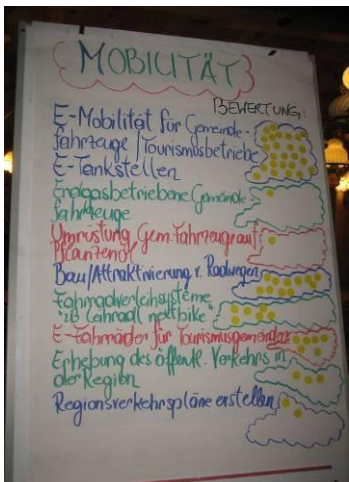 MOBILITÄT
BEWERTUNG:
E-Mobilität für Gemeinde-
fahrzeuge/Tourismusbetriebe
E-Tankstellen
Erdgasbetriebene Gemeinde-
fahrzeuge
Umrüstung Gem. Fahrzeuge auf
Pflanzenöl
Bau/Attraktivierung v. Radwegen
Fahrradverleihsysteme
"zB Leihradl nextbike"
E-Fahrräder für Tourismusgemeinden
Erhebung des öffentl. Verkehrs in
der Region
Regionsverkehrspläne erstellen